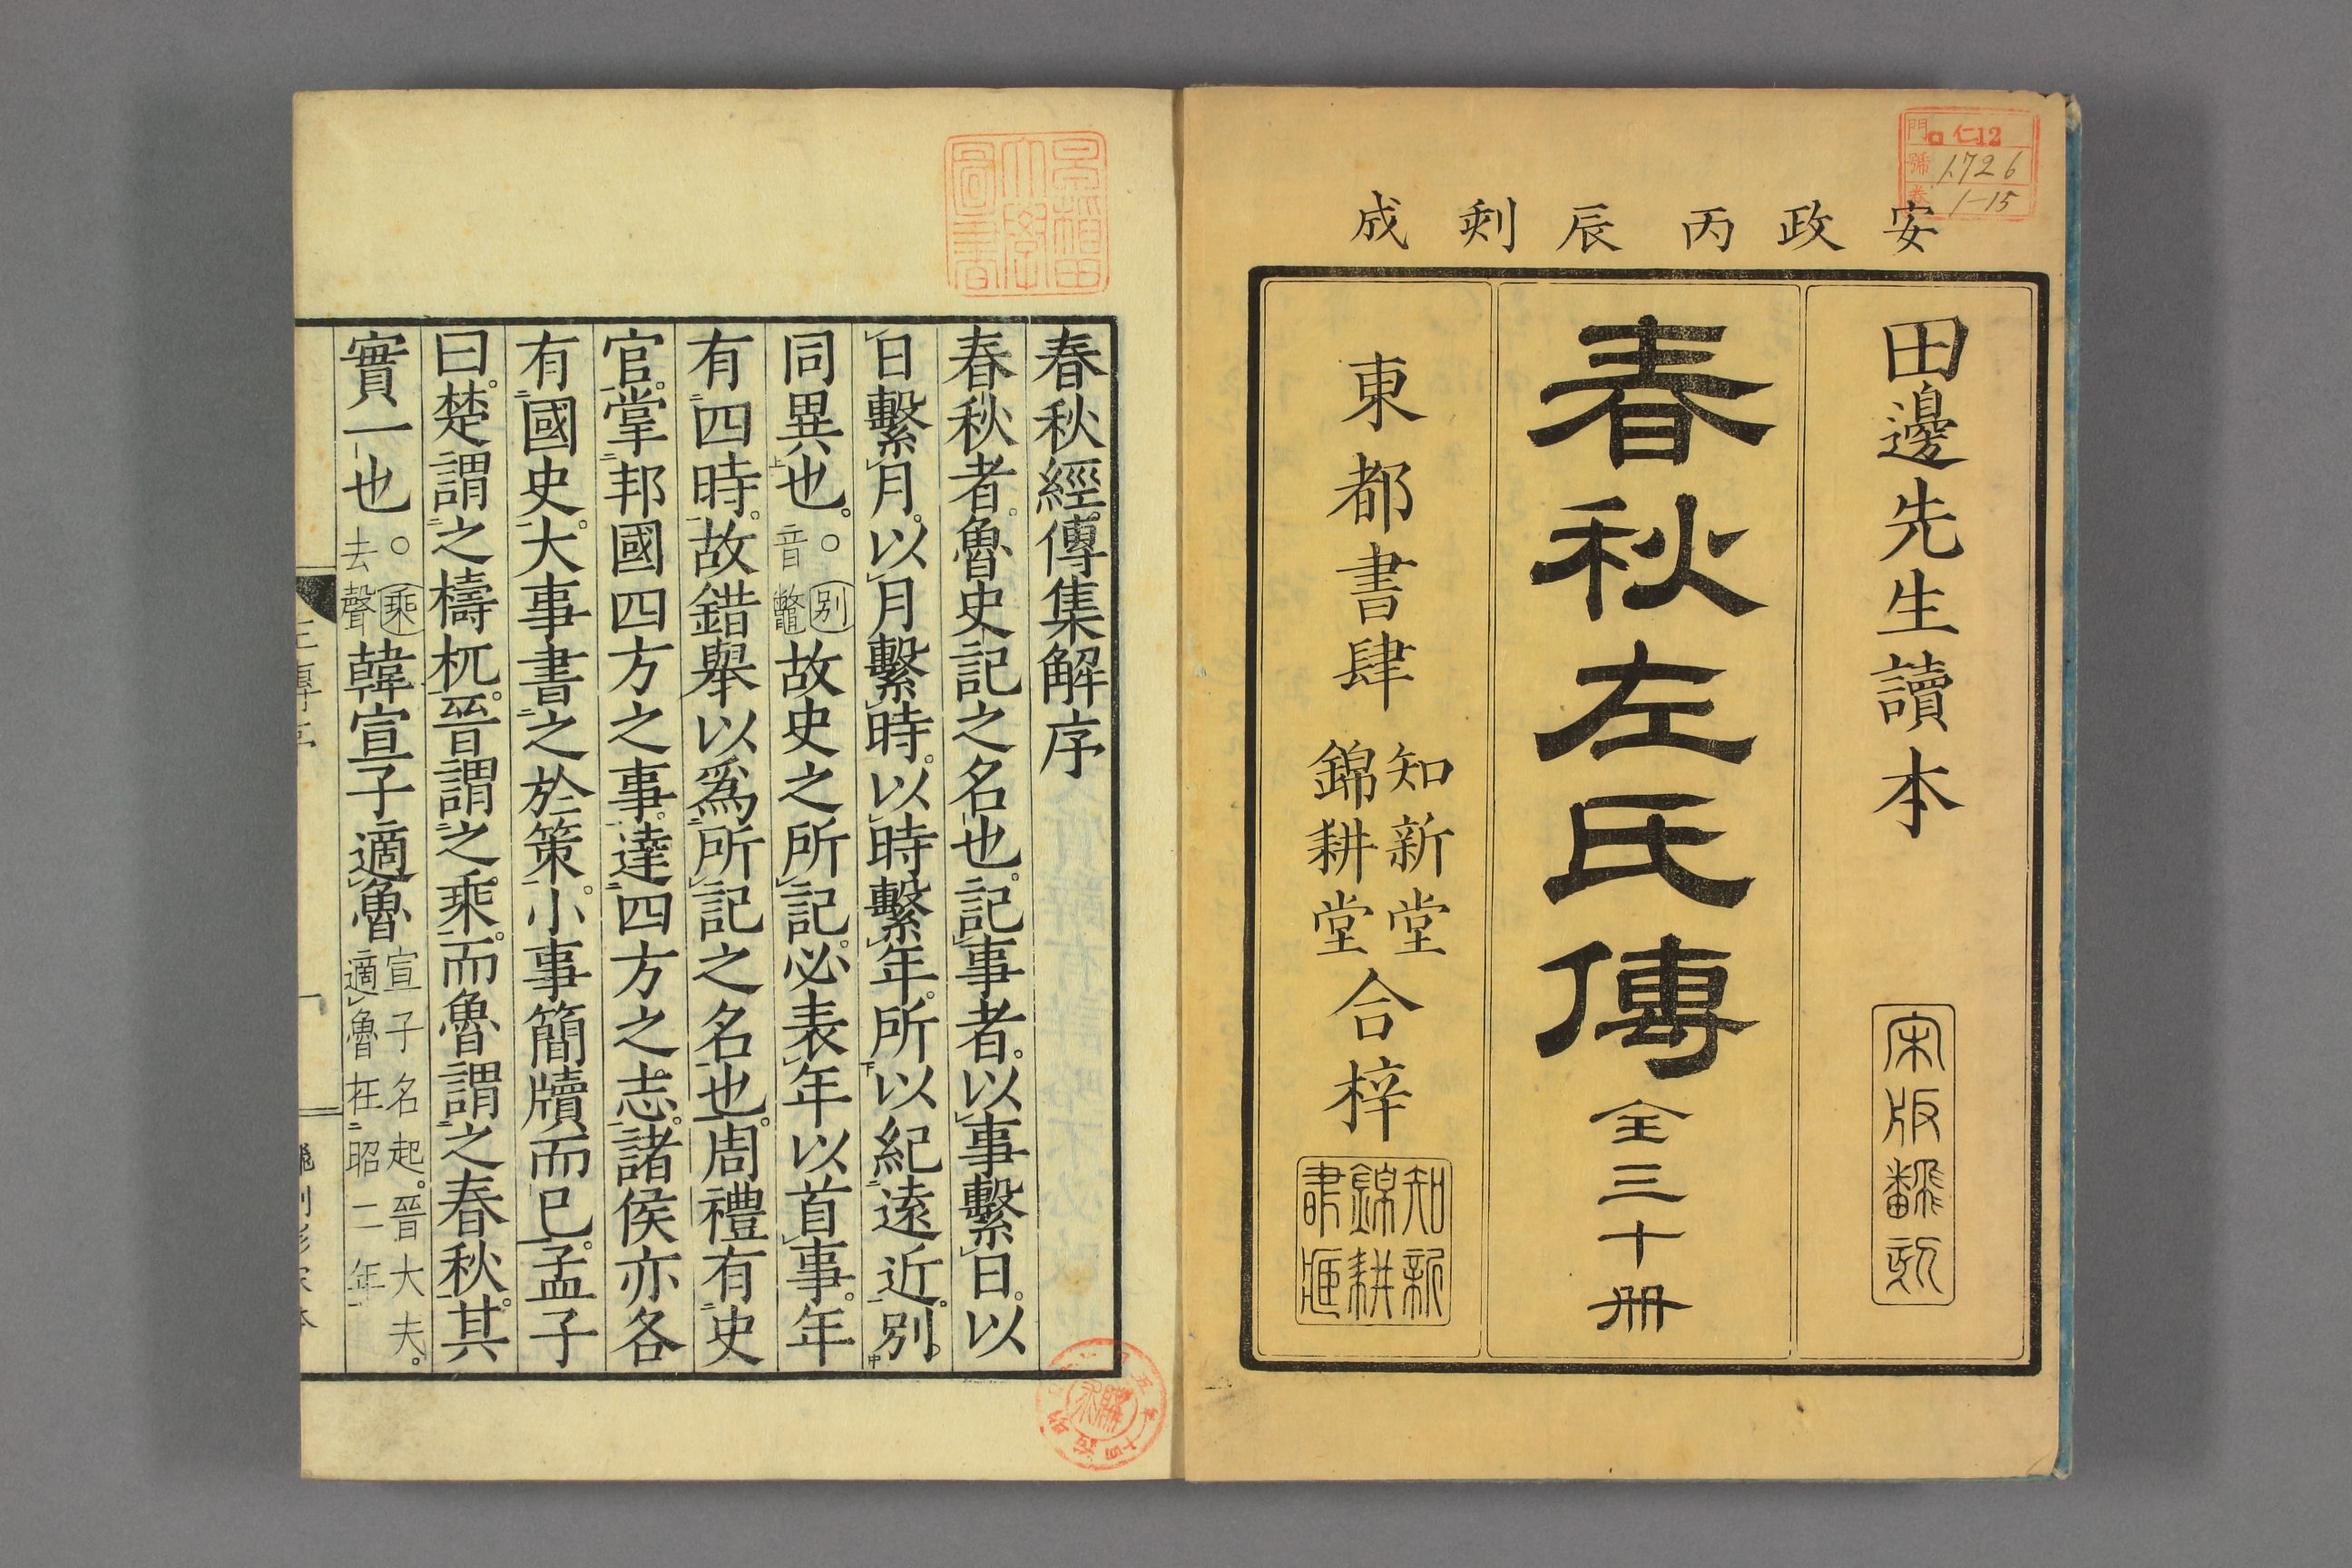 門 仁12
號 1726
卷 1-15
安政丙辰剞成
田邊先生讀本
宋版翻刻
春秋左氏傳全三十册
東都書肆
知新堂
錦耕堂
合梓
知新
錦耕
春秋經傳集解序
春秋者。魯史記之名也。記事者。以事繫日。以
日繫月。以月繫時。以時繫年。所以紀遠近。別
同異也。○別音鼈故史之所記。必表年以首事。年
有四時。故錯舉以爲所記之名也。周禮有史
官。掌邦國四方之事。達四方之志。諸侯亦各
有國史。大事書之於策。小事簡牘而已。孟子
曰。楚謂之檮杌。晉謂之乘。而魯謂之春秋。其
實一也○乘去聲韓宣子適魯宣子名起。晉大夫。適魯在昭二年